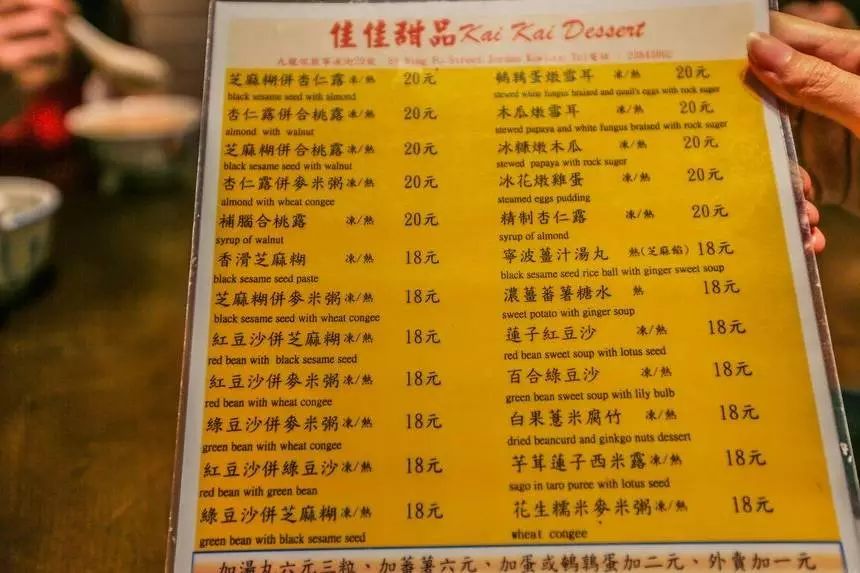 佳佳甜品 Kai Kai Dessert
芝麻糊併杏仁露 凍/熱 20元
black sesame seed with almond
杏仁露併合桃露 凍/熱 20元
almond with walnut
芝麻糊併合桃露 凍/熱 20元
black sesame seed with walnut
杏仁露併麥米粥 凍/熱 20元
almond with wheat congee
補腦合桃露 凍/熱 20元
syrup of walnut
香滑芝麻糊 凍/熱 18元
black sesame seed paste
芝麻糊併麥米粥 凍/熱 18元
black sesame seed with wheat congee
紅豆沙併芝麻糊 凍/熱 18元
red bean with black sesame seed
紅豆沙併麥米粥 凍/熱 18元
red bean with wheat congee
綠豆沙併麥米粥 凍/熱 18元
green bean with wheat congee
紅豆沙併綠豆沙 凍/熱 18元
red bean with green bean
綠豆沙併芝麻糊 凍/熱 18元
green bean with black sesame seed
鵪鶉蛋燉雪耳 凍/熱 20元
stewed white fungus braised and quail's eggs with rock suger
木瓜燉雪耳 凍/熱 20元
stewed papaya and white fungus braised with rock suger
冰糖燉木瓜 凍/熱 20元
stewed papaya with rock suger
冰花燉雞蛋 凍/熱 20元
steamed eggs pudding
精制杏仁露 凍/熱 20元
syrup of almond
寧波薑汁湯丸 熱(芝麻餡) 18元
black sesame seed rice ball with ginger sweet soup
濃薑蕃薯糖水 熱 18元
sweet potato with ginger soup
蓮子紅豆沙 凍/熱 18元
red bean sweet soup with lotus seed
百合綠豆沙 凍/熱 18元
green bean sweet soup with lily bulb
白果薏米腐竹 凍/熱 18元
dried beancurd and ginkgo nuts dessert
芋茸蓮子西米露 凍/熱 18元
sago in taro puree with lotus seed
花生糯米麥米粥 凍/熱 18元
wheat congee
加湯丸六元三粒、加蕃薯六元、加蛋或鵪鶉蛋加二元、外賣加一元